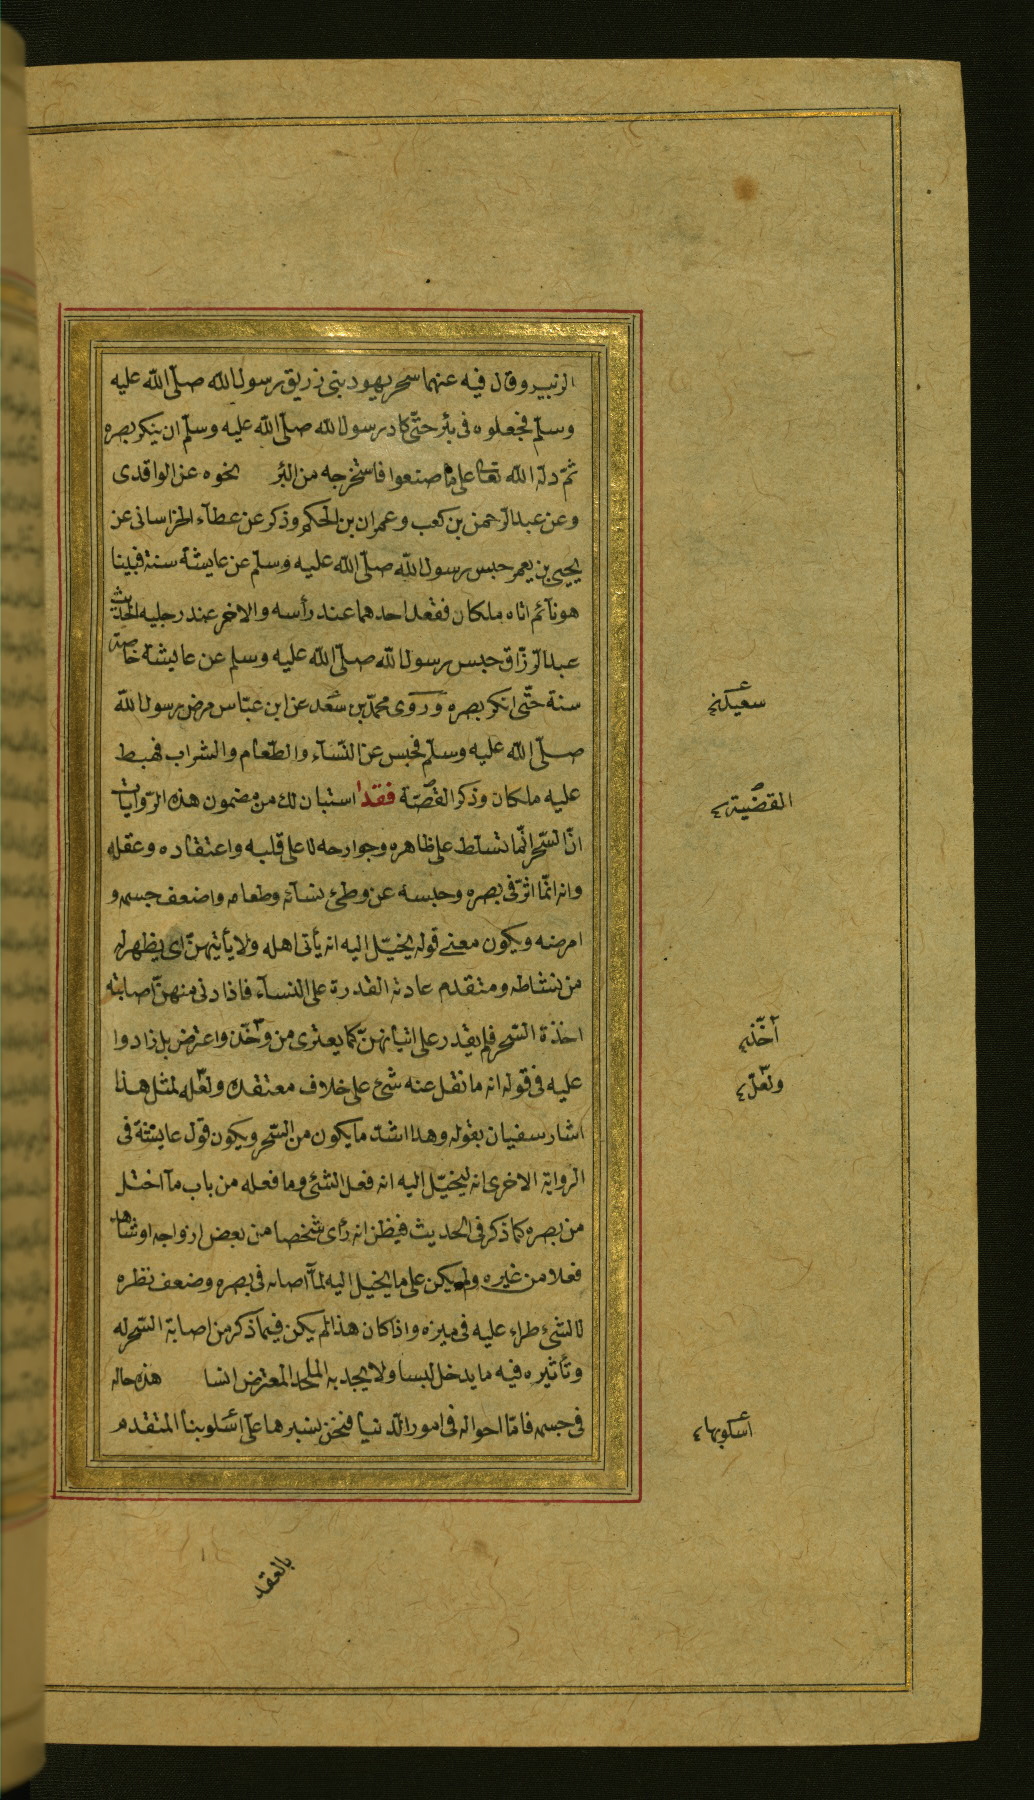 الزبير وقال فيه عنهما سحر يهود بنى زريق رسول الله صلّى الله عليه
وسلّم فجعلوه فى بئر حتّى كاد رسول الله صلّى الله عليه وسلّم ان ينكر بصره
ثمّ دله الله تعالى على ما صنعوا فاستخرجه من البئر نحوه عن الواقدى
وعن عبد الرحمن بن كعب وعمران بن الحكم وذكر عن عطآء الخراسانى عن
يحيى بن يعمر حبس رسول الله صلّى الله عليه وسلّم عن عايشة سنة فبينا
هو نآئم اتاه ملكان فقعد احدهما عند رأسه والاخر عند رجليه الحديث
عبد الرزاق حبس رسول الله صلّى الله عليه وسلم عن عايشة خاصة
سنة حتّى انكر بصره وروى محمّد بن سعد عن ابن عبّاس مرض رسول الله
صلّى الله عليه وسلّم فحبس عن النّسآء والطّعام والشراب فهبط
عليه ملكان وذكر القصّة فقد استبان لك من مضمون هذه الرّوايات
انّ السّحر انّما تسلط على ظاهره وجوارحه لا على قلبه واعتقاده وعقله
وانه انّما اثرّ فى بصره وحبسه عن وطئ نسآئه وطعامه واضعف جسمه و
امرضه ويكون معنى قوله يخيّل اليه انه يأتى اهله ولا يأتيهنّ اى يظهر له
من نشاطه ومتقدم عادته القدرة على النسآء فاذا دنى منهنّ اصابته
اخذة السّحر فلم يقدر على اتيانهنّ كما يعترى من وأخّذ واعترض بل زادوا
عليه فى قوله انه ما نقل عنه شئ على خلاف معتقده ولعله لمثل هذا
اشار سفيان بقوله وهذا اشدّ ما يكون من السّحر ويكون قول عايشة فى
الرواية الاخرى انه ليخيّل اليه انه فعل الشئ وما فعله من باب مآ اختل
من بصره كما ذكر فى الحديث فيظن انه رأى شخصا من بعض ازواجه او شاهد
فعلا من غيره ولم يكن على ما يخيل اليه لمآ اصابه فى بصره وضعف نظره
لا لشئ طراء عليه فى ميزه واذا كان هذا لم يكن فيما ذكر من اصابة السّحر له
وتأثيره فيه ما يدخل لبسا ولا يجد به الملحد المعترض انسا هذه حاله
فى جسمه فامّا احواله فى امور الدّنيا فنحن نسبرها على اسلوبنا المتقدم
القضيّة
أخّذ
اسلوبها
بالعقد